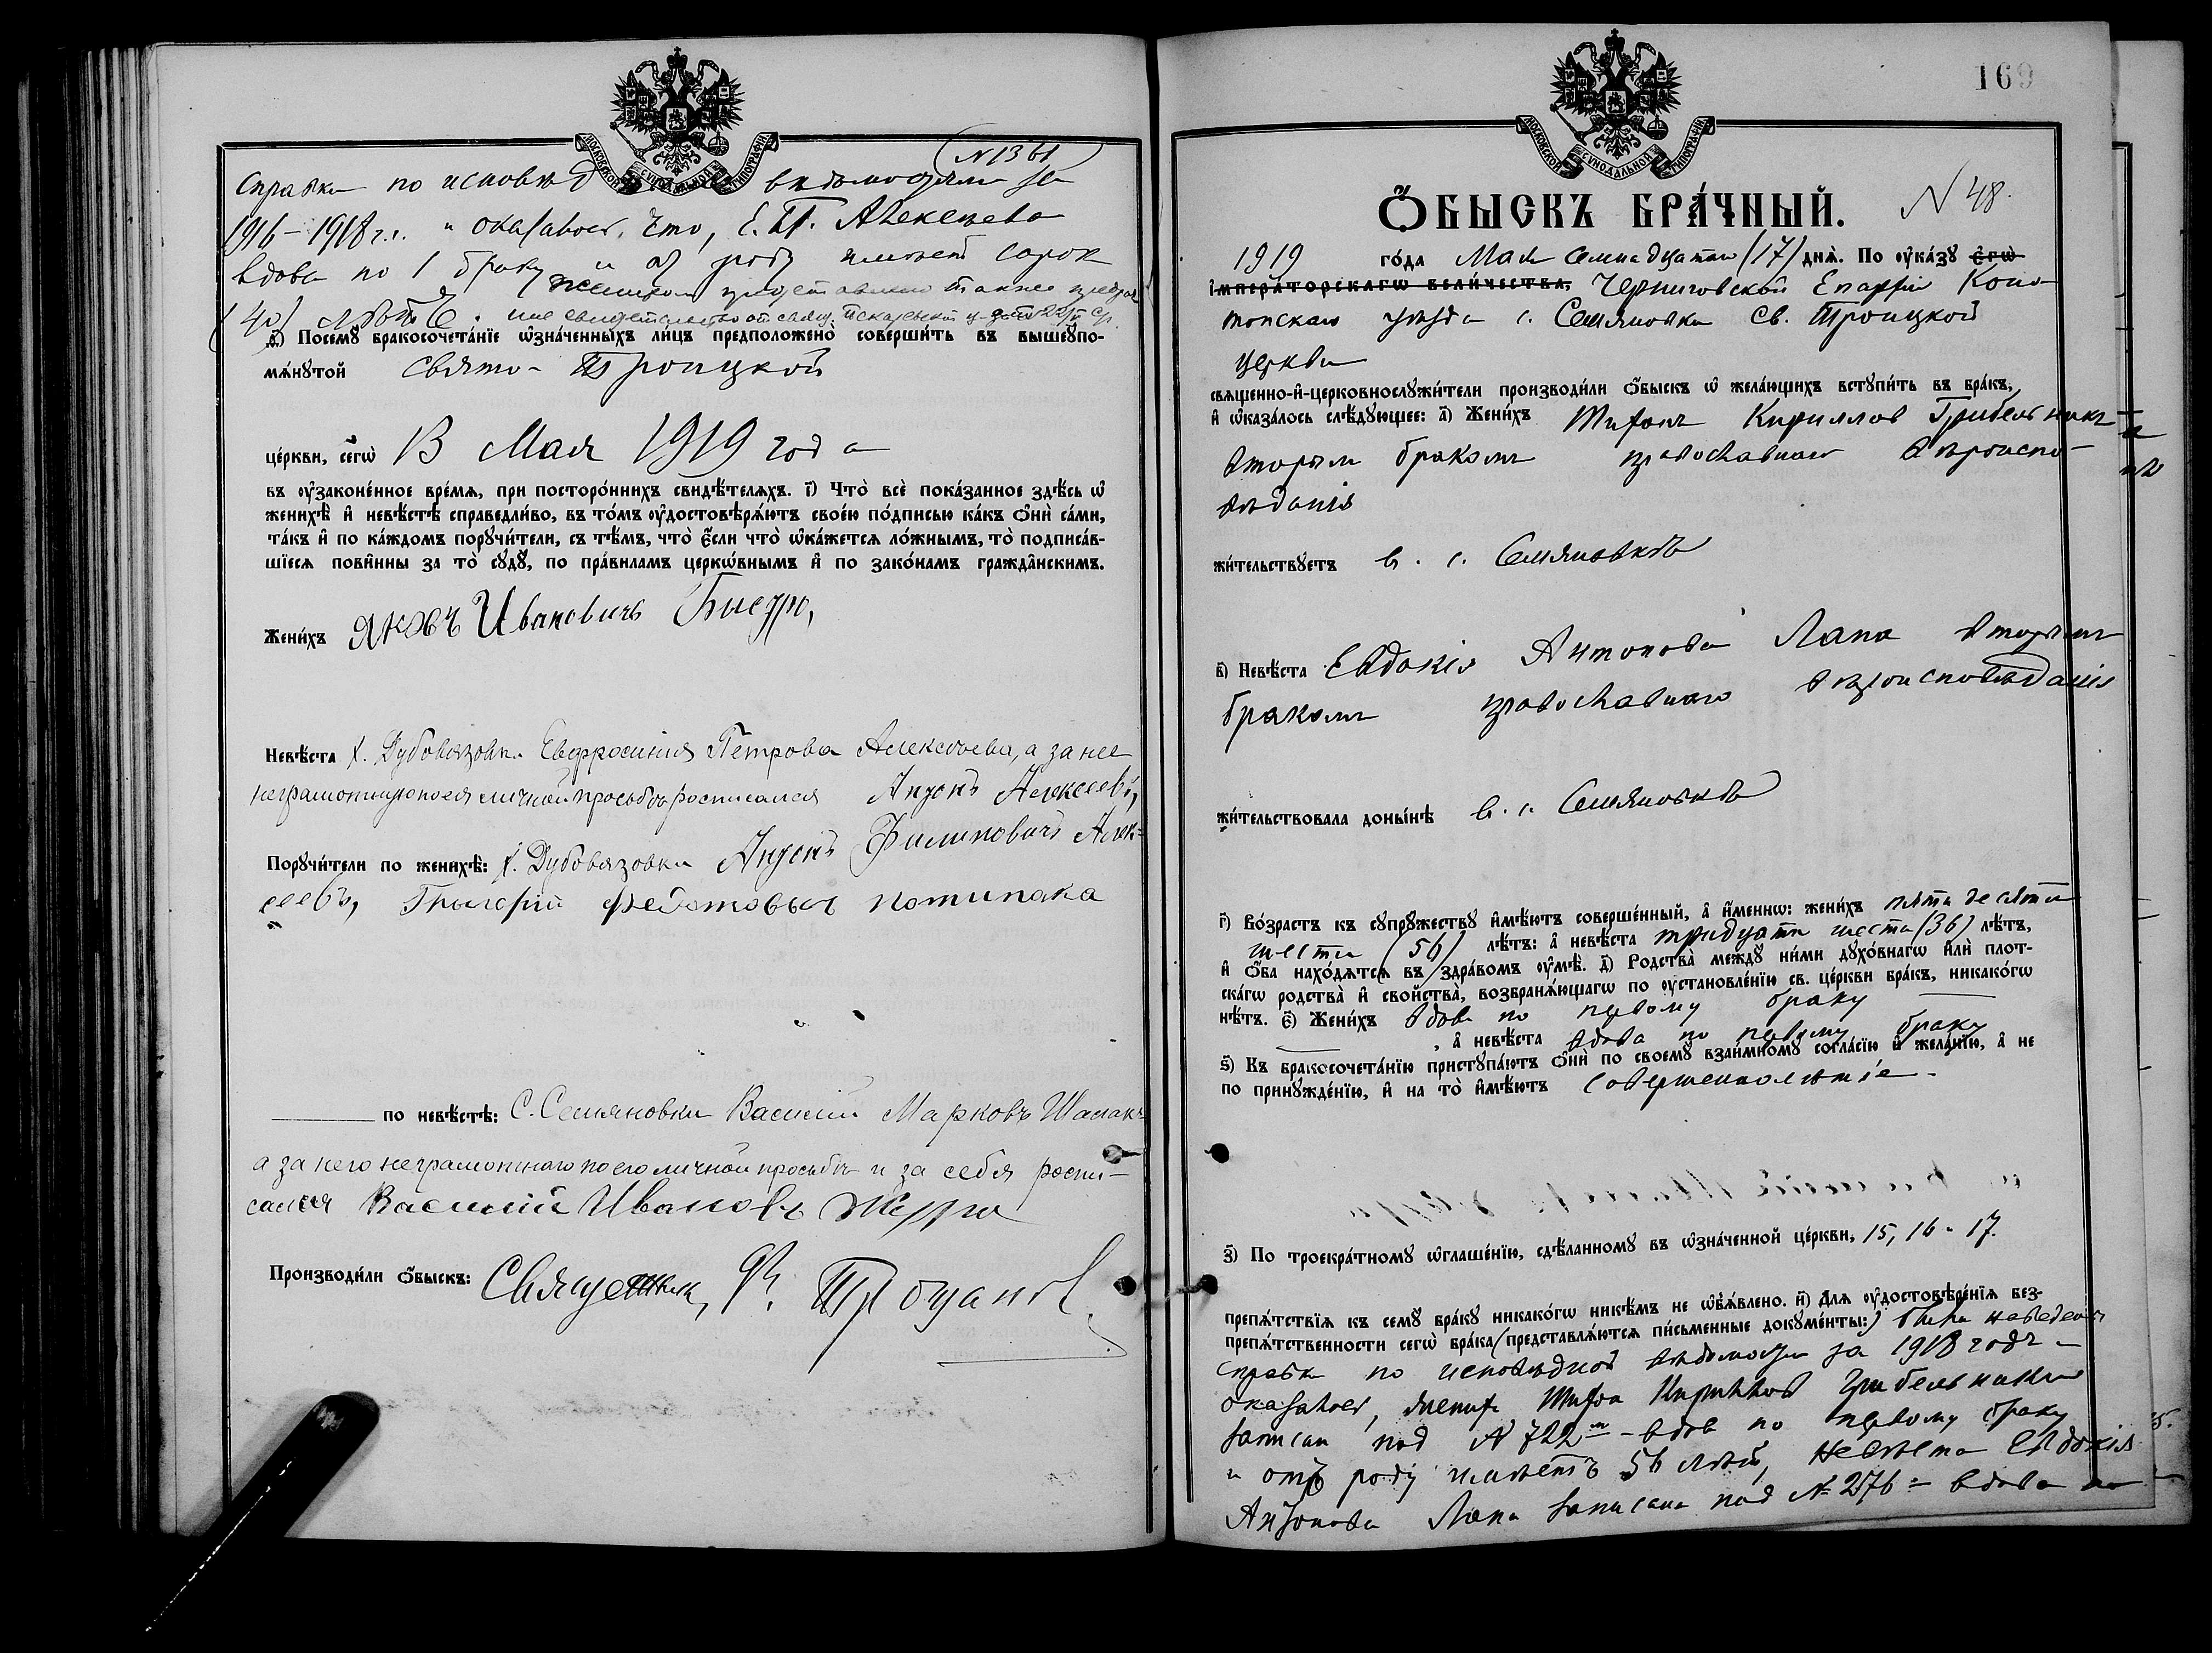 МОСКОВСКОЙ СѴНОДАЛЬНОЙ ТИПОГРАФІИ
(N 1361)
Справки по исповѣд вѣдомостям за
1916-1918 г.г. и оказалось, что, Е. П. Алексѣева
вдова по 1 браку и от роду имѣет сорок
(40) лѣтъ.
д҃і) Посемꙋ̀ бракосочета́нїе ѡ҆зна́ченныхъ ли́цъ предположено̀ соверши́ть въ вышеꙋпо-
мѧ́нꙋтой Свято-Троицкой
це́ркви, сегѡ̀ 13 Мая 1919 года
въ ᲂу҆законе́нное вре́мѧ, при посторо́ннихъ свидѣ́телѧхъ. і҃) Что̀ всѐ пока́занное здѣ́сь ѡ҆
женихѣ̀ и҆ невѣ́стѣ справедли́во, въ то́мъ ᲂу҆достовѣрѧ́ютъ свое́ю по́дписью ка́къ ѻ҆нѝ са́ми,
та́къ и҆ по ка́ждомъ порꙋчи́тели, съ тѣ́мъ, что̀ є҆́сли что̀ ѡ҆ка́жетсѧ ло́жнымъ, то̀ подписа́в-
шїесѧ пови́нны за то̀ сꙋдꙋ̀, по пра́виламъ церко́внымъ и҆ по зако́намъ гражда́нскимъ.
Жени́хъ Яковъ Ивановичъ Бистро,
Невѣ́ста х. Дубовязовки Евфросинія Петрова Алексѣева, а за нее
неграмотную по ея личной просьбѣ росписался Антонъ Алексеевъ,
Порꙋчи́тели по женихѣ̀: х. Дубовязовки Антонъ Филиповичъ Алек-
сеевъ, Григорій Федотовыч
по невѣ́стѣ: С. Семяновки Василій Марковъ
а за него неграмотнаго по его личной просьбѣ и за себя роспи-
сался Василій Ивановъ
Производи́ли ѻ҆́быскъ: Священник, Ф. Троцанов
169
МОСКОВСКОЙ СѴНОДАЛЬНОЙ ТИПОГРАФІИ
Ѻ҆́БЫСКЪ БРА́ЧНЫЙ. N 48.
1919 го́да Мая семнадцатаго (17) днѧ̀. По ᲂу҆ка́зꙋ Є҆гѡ̀
І҆мпера́торскагѡ вели́чества, Черниговской Епархіи Коно-
топскаго уѣзда с. Семяновки Св. Троицкой
церкви
свѧще́нно-и҆-церковнослꙋжи́тели производи́ли ѻ҆́быскъ ѡ҆ жела́ющихъ вступи́ть въ бра́къ,
и҆ ѡ҆каза́лось слѣ́дꙋющее: а҃) Жени́хъ Тихонъ Кириллов Грибельникъ
вторым браком православнаго вѣроиспо-
вѣданія
жи́тельствꙋетъ в. с. Семяновкѣ
в҃) Невѣ́ста Евдокія Антонова Лапа вторым
браком православнаго вѣроисповѣданія
жи́тельствовала доны́нѣ в. с. Семяновкѣ
г҃) Во́зрастъ къ сꙋпрꙋ́жествꙋ и҆мѣ́ютъ соверше́нный, а҆ и҆́меннѡ: жени́хъ пятидесяти
шести (56) лѣ́тъ: а҆ невѣ́ста тридцати шести (36) лѣ́тъ,
и҆ ѻ҆́ба нахо́дѧтсѧ въ здра́вомъ ᲂу҆мѣ̀. д҃) Родства̀ междꙋ̀ ни́ми дꙋхо́внагѡ и҆лѝ плот-
ска́гѡ родства̀ и҆ сво́йства, возбранѧ́ющагѡ по ᲂу҆становле́нїю св. це́ркви бра́къ, никако́гѡ
нѣ́тъ. є҃) Жени́хъ вдов по первому браку
, а҆ невѣ́ста вдова по первому браку
ѕ҃) Къ бракосочета́нїю приступа́ютъ ѻ҆нѝ по своемꙋ̀ взаи́мномꙋ согла́сїю и҆ жела́нїю, а҆ не
по принꙋжде́нїю, и҆ на то̀ и҆мѣ́ютъ совершеннолѣтіе.
з҃) По троекра́тномꙋ ѡ҆глаше́нїю, сдѣ́ланномꙋ въ ѡ҆зна́ченной це́ркви, 15, 16 и 17.
препѧ́тствїѧ къ семꙋ̀ бра́кꙋ никако́гѡ никѣ́мъ не ѡ҆б̾ѧ́влено. и҃) Длѧ ᲂу҆достовѣре́нїѧ без-
препѧ́тственности сегѡ̀ бра́ка (представлѧ́ютсѧ пи́сьменные докꙋме́нты:) были наведены
справки по исповѣдной вѣдомости за 1918 годъ и
оказалось, жених Тихон Кириллов Грибельникъ
записан под № 722 - вдов по первому браку
и отъ роду имѣетъ 56 лѣт, Невѣста Евдокія
Антонова Лапа записана под № 276 = вдова по